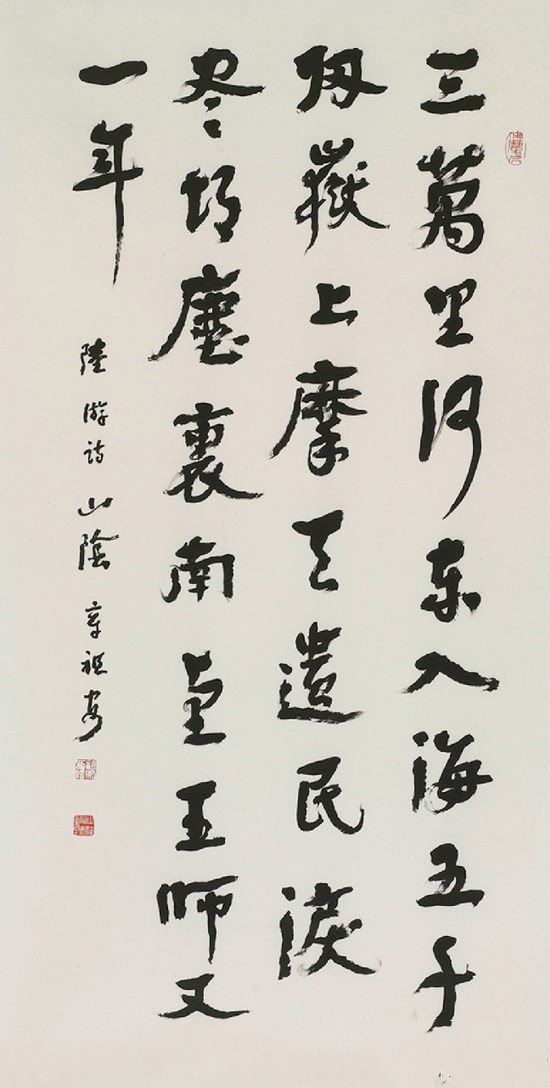 三萬里河東入海五千
仞嶽上摩天遺民淚
盡胡塵裏南望王師又
一年
陸游詩山陰章祖安